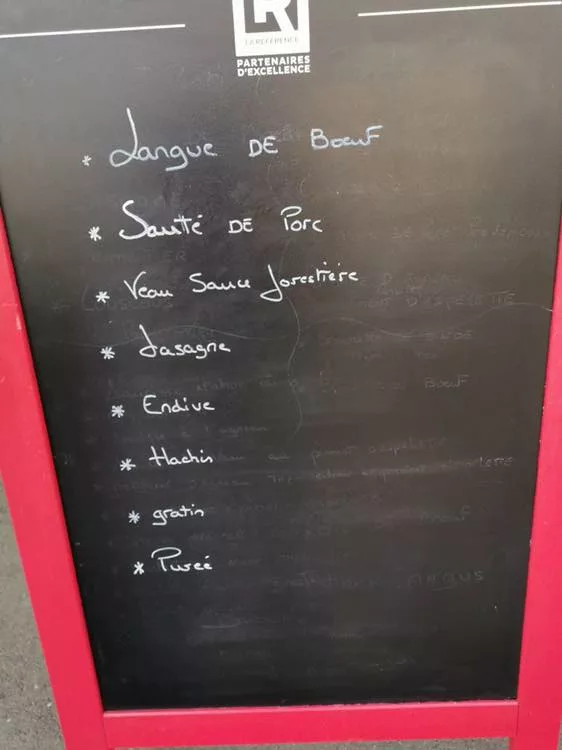 LR
LA RÉFÉRENCE
PARTENAIRES
D'EXCELLENCE
* Langue DE Bœuf
* Sauté DE Porc
* Veau Sauce forestière
* Lasagne
* Endive
* Hachis
* gratin
* Pureé